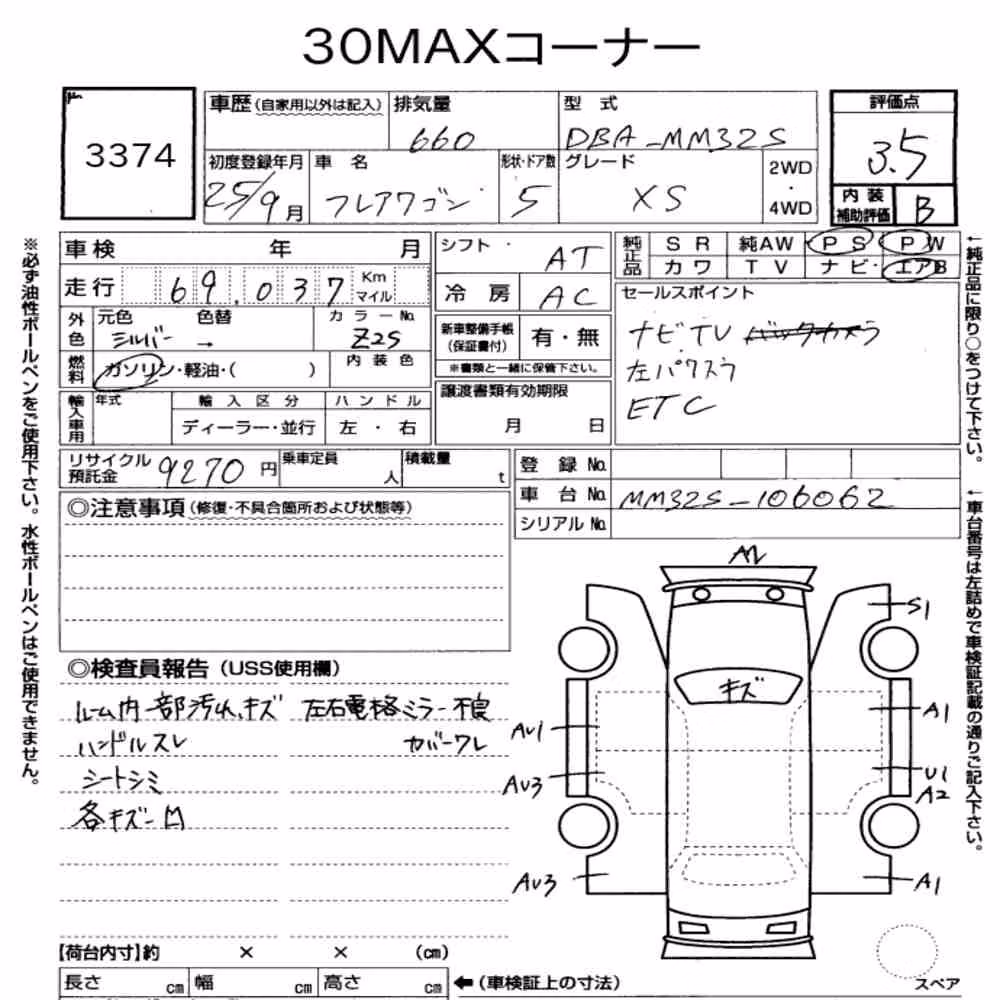 30MAXコーナー
3374
車歴(自家用以外は記入)
排気量
660
型 式
DBA-MM32S
評価点
3.5
初度登録年月
25/9月
車 名
フレアワゴン
形状・ドア数
5
グレード
XS
2WD
・
4WD
内装
補助評価
B
車検 年 月
走行 69,037 Km
マイル
外色
元色 色替
シルバー →
カラーNo.
Z2S
燃料
ガソリン・軽油・( )
内装色
輸入車用
年式
輸入区分
ディーラー・並行
ハンドル
左・右
シフト・
AT
冷房
AC
新車整備手帳
(保証書付)
有・無
※書類と一緒に保管下さい。
譲渡書類有効期限
月 日
純正品
SR 純AW PS PW
カワ TV ナビ・ エアB
セールスポイント
ナビTV バックカメラ
左パワスラ
ETC
リサイクル
預託金
9270円
乗車定員
人
積載量
t
登録No.
車台No.
MM32S-106062
シリアルNo.
◎注意事項(修復・不具合箇所および状態等)
◎検査員報告(USS使用欄)
ルーム内一部汚れ、キズ 左右電格ミラー不良
ハンドルスレ カバーワレ
シートシミ
各キズ凹
A2
S1
キズ
AU1
A1
AU3
U1
A2
AU3
A1
スペア
【荷台内寸】約 × × (cm)
長さ cm
幅 cm
高さ cm
←(車検証上の寸法)
※必ず油性ボールペンをご使用下さい。水性ボールペンはご使用できません。
←純正品に限り○をつけて下さい。
←車台番号は左詰めで車検証記載の通りご記入下さい。